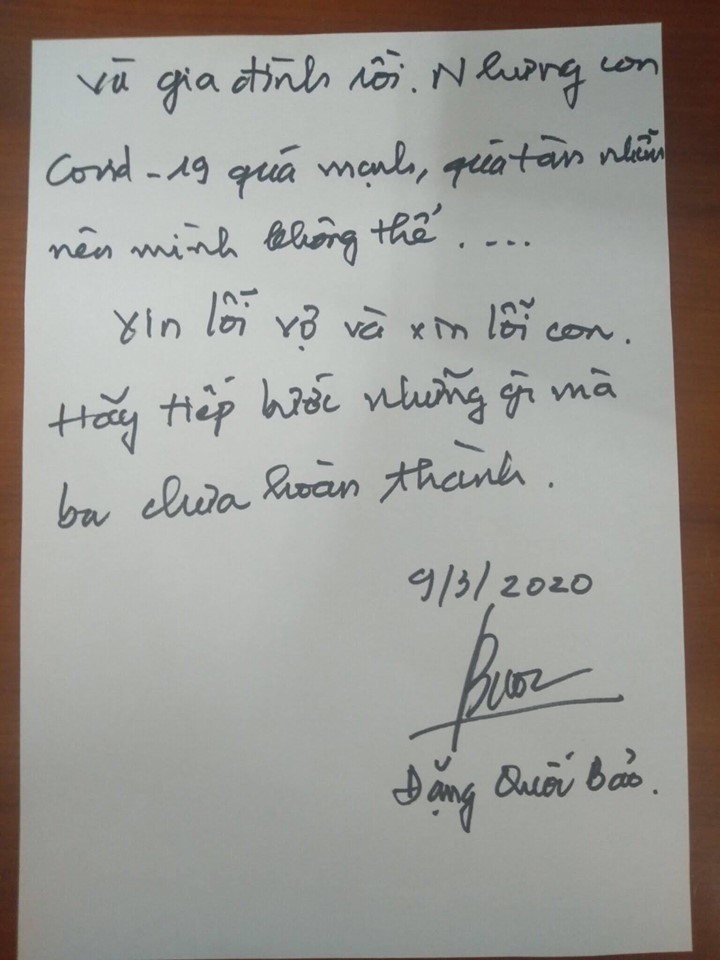 và gia đình rồi. Nhưng con
Covid-19 quá mạnh, quá tàn nhẫn
nên mình không thể. ....
Xin lỗi vợ và xin lỗi con.
Hãy tiếp bước những gì mà
ba chưa hoàn thành.
9/3/2020
Đặng Quốc Bảo.